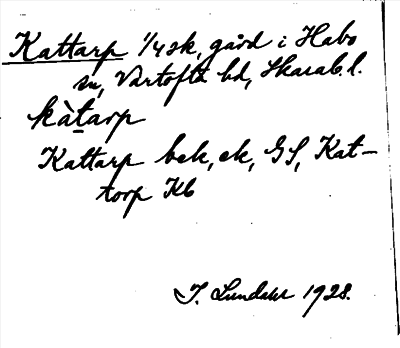 Kattarp 1/4 sk, gård i Habo
sn, Vartofta hd, Skarab. l.
kàtarp
Kattarp bek, ek, GS, Kat-
torp Kb
J. Lundahl 1928.